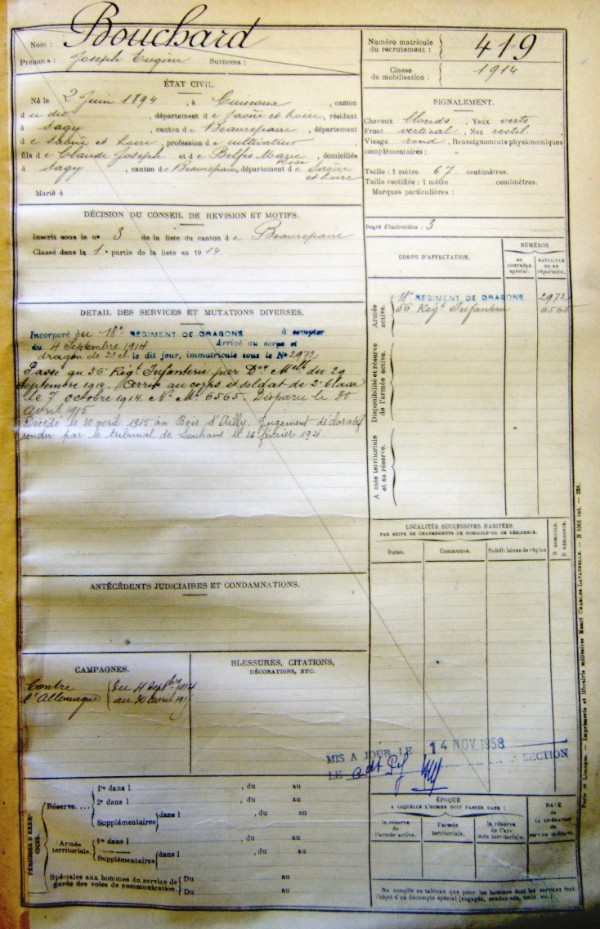 Nom : Bouchard
Prénoms : Joseph Eugène Surnoms :
Numéro matricule du recrutement : 419
Classe de mobilisation : 1914
ÉTAT CIVIL.
Né le 2 Juin 1894, à Cuiseaux, canton
d u dit, département d e Saône et Loire, résidant
à Sagy, canton d e Beaurepaire, département
d e Saône et Loire, profession d e cultivateur
fils d e Claude Joseph et d e Marie, domiciliés
à Sagy, canton d e Beaurepaire, département d e Saône
et Loire
Marié à
SIGNALEMENT.
Cheveux blonds, Yeux verts
Front vertical, Nez rectil.
Visage rond, Renseignements physionomiques
complémentaires :
Taille : 1 mètre 67 centimètres.
Taille rectifiée : 1 mètre centimètres.
Marques particulières :
Degré d'instruction : 3
DÉCISION DU CONSEIL DE REVISION ET MOTIFS.
Inscrit sous le n° 3 de la liste du canton d e Beaurepaire
Classé dans la 1e partie de la liste en 1914
CORPS D'AFFECTATION.
NUMÉROS
au contrôle spécial.
MATRICULE ou au répertoire.
Armée active.
11e REGIMENT DE DRAGONS 2972
56 Régt Infanterie 6565
Disponibilité et réserve de l'armée active.
Armée territoriale et sa réserve.
DÉTAIL DES SERVICES ET MUTATIONS DIVERSES.
Incorporé au 11e REGIMENT DE DRAGONS à compter
du 4 Septembre 1914 Arrivé au corps et
dragon de 2e cl le dit jour, immatriculé sous le N° 2972
Passé au 56 Régt Infanterie par Don Melle du 29
Septembre 1914. Arrivé au corps et soldat de 2e classe
le 7 octobre 1914. N° Mle 6565. Disparu le 30
Avril 1915
Décédé le 30 avril 1915 au Bois d'Ailly. Jugement déclaratif
rendu par le tribunal de Louhans le 26 février 1921.
LOCALITÉS SUCCESSIVES HABITÉES
PAR SUITE DE CHANGEMENTS DE DOMICILE OU DE RÉSIDENCE.
Dates.
Communes.
Subdivisions de région.
D. DOMICILE.
R. RÉSIDENCE.
ANTÉCÉDENTS JUDICIAIRES ET CONDAMNATIONS.
CAMPAGNES.
BLESSURES, CITATIONS,
DÉCORATIONS, ETC.
Contre l'Allemagne
du 4 Septbre 1914
au 30 avril 1915
MIS A JOUR LE 14 NOV 1958
LE SECTION
PÉRIODES D'EXERCICES.
Réserve....
1re dans l , du au
2e dans l , du au
Supplémentaires dans l , du au
Armée territoriale.
1re dans l , du au
Supplémentaires dans l , du au
Spéciales aux hommes du service de
garde des voies de communication.
Du au
Du au
ÉPOQUE
A LAQUELLE L'HOMME DOIT PASSER DANS :
la réserve de l'armée active.
l'armée territoriale.
la réserve de l'armée territoriale.
DATE DE LA LIBÉRATION DU SERVICE MILITAIRE.
Ne remplir ce tableau que pour les hommes dont les services font
l'objet d'un décompte spécial (engagés, condamnés, omis, etc.)
Paris et Limoges. — Imprimerie et librairie militaires Henri CHARLES-LAVAUZELLE.